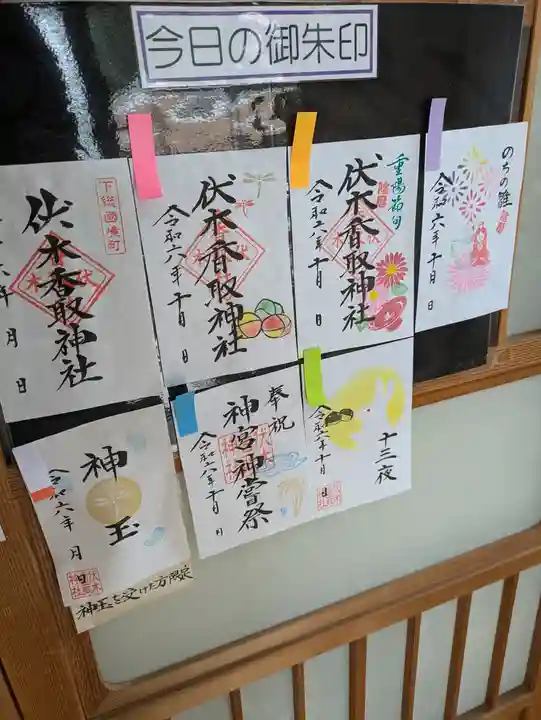 今日の御朱印
下総國境町
伏木香取神社
月 日
伏木香取神社
令和六年十月 日
重陽節句
陰暦
伏木香取神社
令和六年十月 日
のちの雛
陰暦
令和六年十月 日
神玉
令和六年 月 日
神玉を受けた方限定
奉祝
神宮神嘗祭
令和六年十月 日
十三夜
令和六年十月 日